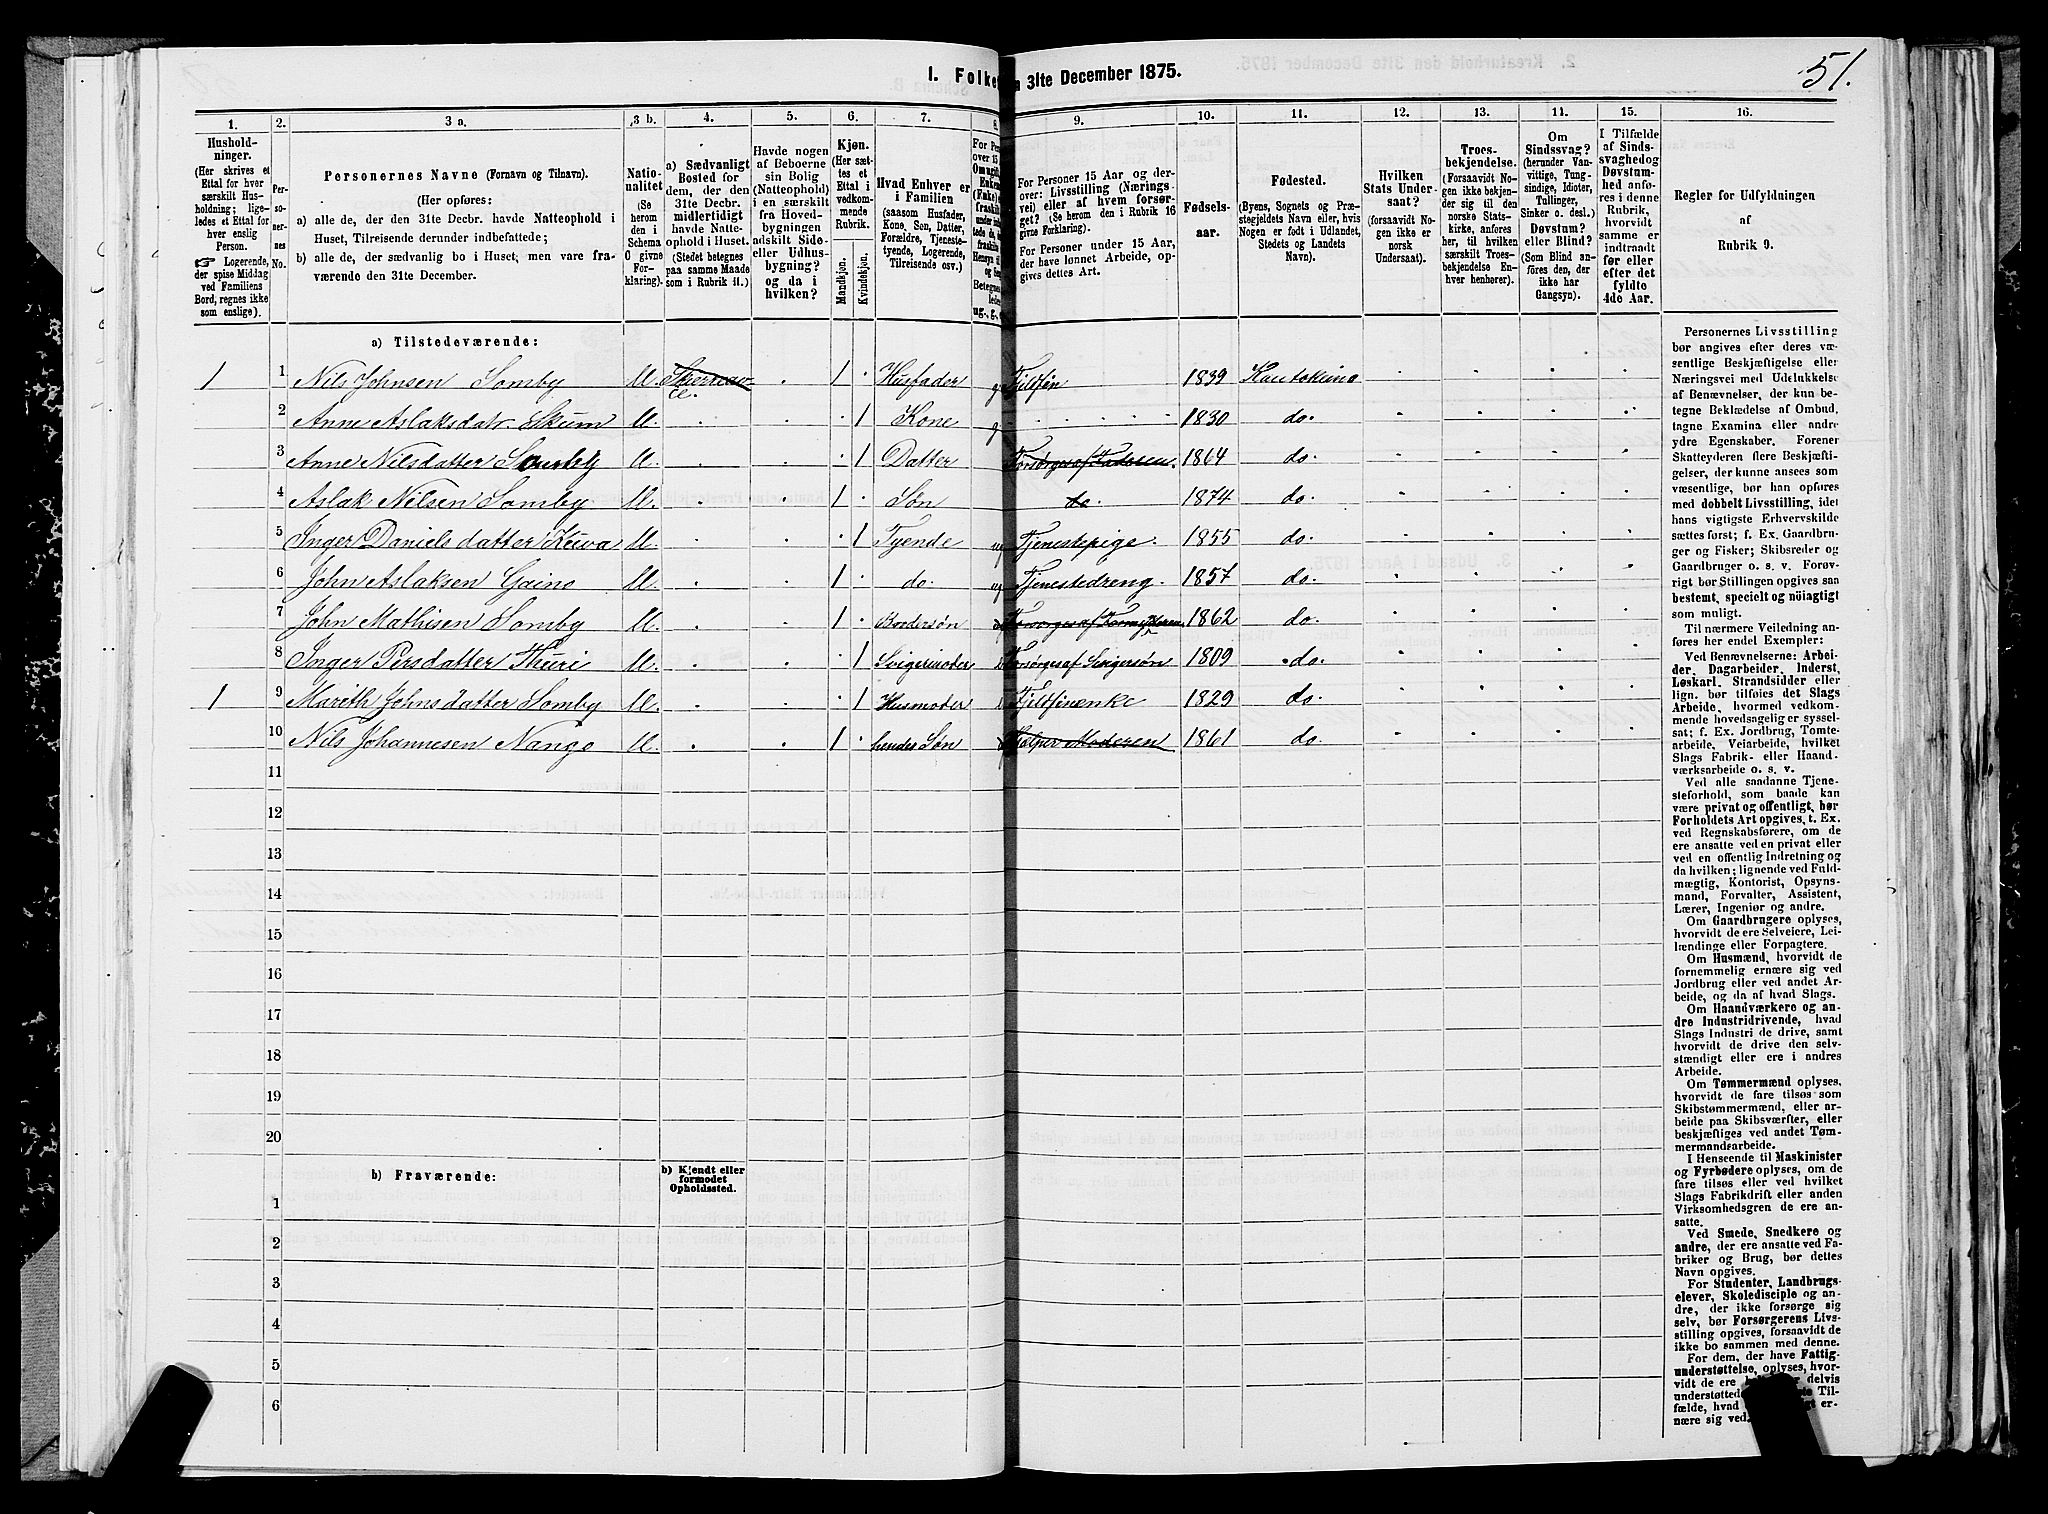 51.
1. Folke
n 31te December 1875.
1. 2. 3 a. 3 b. 4. 5. 6. 7. 8. 9. 10. 11. 12. 13. 14. 15. 16.
Hushold-
ninger.
(Her skrives et
Ettal for hver
særskilt Hus-
holdning; lige-
ledes et Ettal for
hver enslig
Person.
☞ Logerende,
der spise Middag
ved Familiens
Bord, regnes ikke
som enslige).
Per-
so-
ner-
nes
No.
Personernes Navne (Fornavn og Tilnavn).
(Her opføres:
a) alle de, der den 31te Decbr. havde Natteophold i
Huset, Tilreisende derunder indbefattede;
b) alle de, der sædvanlig bo i Huset, men vare fra-
værende den 31te December.
Natio-
nalitet
(Se
herom
den i
Schema
O givne
For-
klaring).
a) Sædvanligt
Bosted for
dem, der den
31te Decbr.
midlertidigt
havde Natte-
ophold i Huset.
(Stedet betegnes
paa samme Maade
som i Rubrik 11.)
Havde nogen
af Beboerne
sin Bolig
(Natteophold)
i en særskilt
fra Hoved-
bygningen
adskilt Side-
eller Udhus-
bygning?
og da i
hvilken?
Kjøn.
(Her sæt-
tes et
Ettal i
vedkom-
mende
Rubrik.
Mandkjøn.
Kvindekjøn.
Hvad Enhver er
i Familien
(saasom Husfader,
Kone, Søn, Datter,
Forældre, Tjeneste-
tyende, Logerende,
Tilreisende osv.)
For Personer 15 Aar og der-
over: Livsstilling (Nærings-
vei) eller af hvem forsør-
get? (Se herom den i Rubrik 16
givne Forklaring).
For Personer under 15 Aar,
der have lønnet Arbeide, op-
gives dettes Art.
Fødsels-
aar.
Fødested.
(Byens, Sognets og Præ-
stegjeldets Navn eller, hvis
Nogen er født i Udlandet,
Stedets og Landets
Navn).
Hvilken
Stats Under-
saat?
(forsaavidt No-
gen ikke er
norsk
Undersaat).
Troes-
bekjendelse.
(Forsaavidt No-
gen ikke bekjen-
der sig til den
norske Stats-
kirke, anfø-
res her, til hvilken
særskilt Troes-
bekjendelse En-
hver henhører).
Om
Sindssvag?
(herunder Van-
vittige, Tung-
sindige, Idioter,
Tullinger,
Sinker o. desl.)
Døvstum?
eller Blind?
(Som Blind an-
føres den, der
ikke har
Gangsyn).
I Tilfælde
af Sinds-
svaghed og
Døvstum-
hed anfø-
res i denne
Rubrik,
hvorvidt
samme er
indtraadt
før eller
efter det
fyldte
4de Aar.
Regler for Udfyldningen
af
Rubrik 9.
a) Tilstedeværende:
1 1 Nils Johnsen Somby M. 1 Husfader g Fjeldfin 1839 Kautokeino
2 Anne Aslaksdatr Skum M. 1 Kone g 1830 do.
3 Anne Nilsdatter Somby M. 1 Datter Forsørges af Faderen. 1864 do.
4 Aslak Nilsen Somby M. 1 Søn do 1874 do.
5 Inger Danielsdatter Kuva M. 1 Tyende ug Tjenestepige. 1855 do.
6 John Aslaksen Gaino M. 1 do. ug Tjenestedreng. 1857 do.
7 John Mathisen Somby M. 1 Brodersøn 1862 do.
8 Inger Persdatter Thuri M. 1 Svigermoder Forsørges af Svigersøn 1809 do.
1 9 Mareth Johnsdatter Somby M. 1 Husmoder Fjeldfinenke 1829 do.
10 Nils Johannesen Nango M. 1 hendes Søn Hjelper Moderen 1861 do.
11
12
13
14
15
16
17
18
19
20
b) Fraværende:
b) Kjendt eller
formodet
Opholdssted.
1
2
3
4
5
6
Personernes Livsstilling
bør angives efter deres væ-
sentlige Beskjæftigelse eller
Næringsvei med Udelukkelse
af Benævnelser, der kun be-
tegne Beklædelse af Ombud,
tagne Examina eller andre
ydre Egenskaber. Forener
Skatteyderen flere Beskjæfti-
gelser, der kunne ansees som
væsentlige, bør han opføres
med dobbelt Livsstilling, idet
hans vigtigste Erhvervskilde
sættes først; f. Ex. Gaardbru-
ger og Fisker; Skibsreder og
Gaardbruger o. s. v. Forøv-
rigt bør Stillingen opgives saa
bestemt, specielt og nöiagtigt
som muligt.
Til nærmere Veiledning an-
føres her endel Exempler:
Ved Benævnelserne: Arbei-
der, Dagarbeider, Inderst,
Løskarl, Strandsidder eller
lign. bør tilføies det Slags
Arbeide, hvormed vedkom-
mende hovedsagelig er syssel-
sat; f. Ex. Jordbrug, Tomte-
arbeide, Veiarbeide, hvilket
Slags Fabrik- eller Haand-
værksarbeide o. s. v.
Ved alle saadanne Tjene-
steforhold, som baade kan
være privat og offentligt, bør
Forholdets Art opgives, t. Ex.
ved Regnskabsførere, om de
ere ansatte ved en privat eller
ved en offentlig Indretning og
da hvilken; lignende ved Fuld-
mægtig, Kontorist, Opsyns-
mand, Forvalter, Assistent,
Lærer, Ingeniør og andre.
Om Gaardbrugere oplyses,
hvorvidt de ere Selveiere, Lei-
lændinge eller Forpagtere.
Om Husmænd, hvorvidt de
fornemmelig ernære sig ved
Jordbrug eller ved andet Ar-
beide, og da af hvad Slags.
Om Haandværkere og an-
dre Industridrivende, hvad
Slags Industri de drive, samt
hvorvidt de drive den selv-
stændigt eller ere i andres
Arbeide.
Om Tømmermænd oplyses,
hvorvidt de fare tilsøs som
Skibstømmermænd, eller ar-
beide paa Skibsværfter, eller
beskjæftiges ved andet Tøm-
mermandsarbeide.
I Henseende til Maskinister
og Fyrbødere oplyses, om de
fare tilsøs eller ved hvilket
Slags Fabrikdrift eller anden
Virksomhedsgren de ere an-
satte.
Ved Smede, Snedkere og
andre, der ere ansatte ved Fa-
briker og Brug, bør dettes
Navn opgives.
For Studenter, Landbrugs-
elever, Skoledisciple og an-
dre, der ikke forsørge sig
selv, bør Forsørgerens Livs-
stilling opgives, forsaavidt de
ikke bo sammen med denne.
For dem, der have Fattig-
understøttelse, oplyses, hvor-
vidt de ere delvis
understøttede Til-
fælde, hvad er-
nære sig ved.